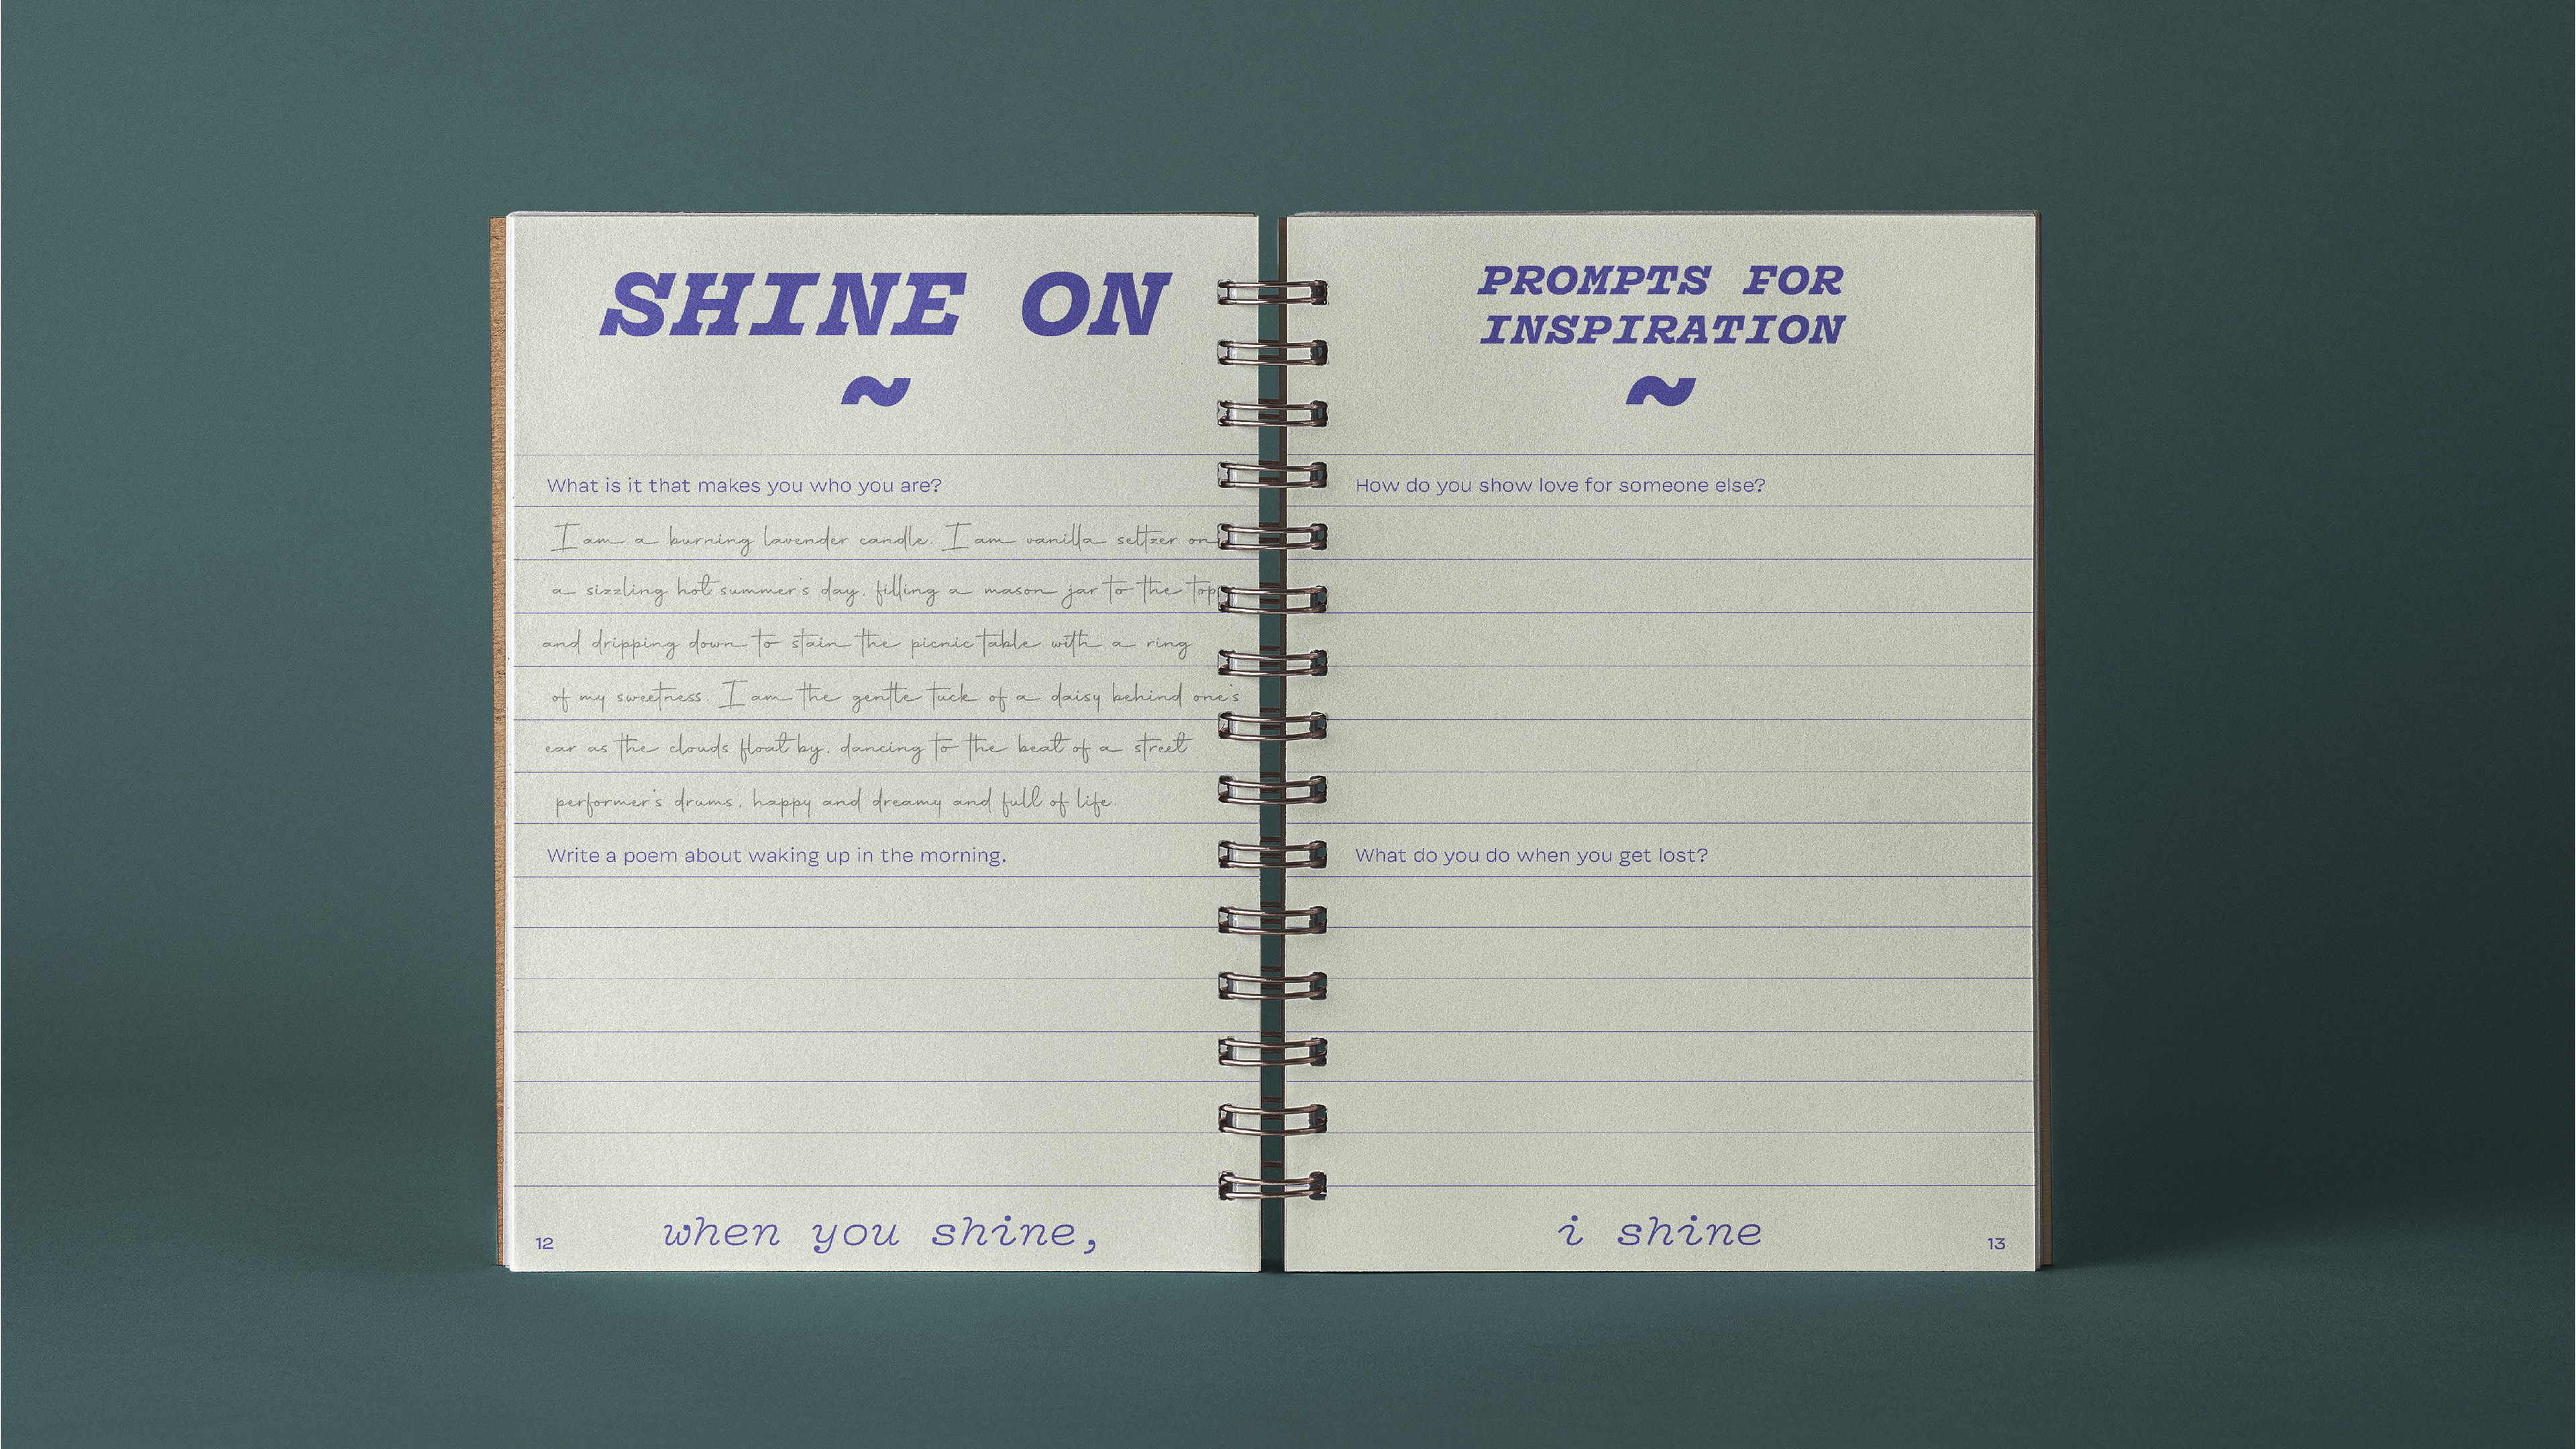 SHINE ON
~
What is it that makes you who you are?
I am a burning lavender candle. I am vanilla seltzer on
a sizzling hot summer's day, filling a mason jar to the top
and dripping down to stain the picnic table with a ring
of my sweetness. I am the gentle tuck of a daisy behind one's
ear as the clouds float by, dancing to the beat of a street
performer's drums, happy and dreamy and full of life.
Write a poem about waking up in the morning.
when you shine,
12
PROMPTS FOR
INSPIRATION
~
How do you show love for someone else?
What do you do when you get lost?
i shine
13